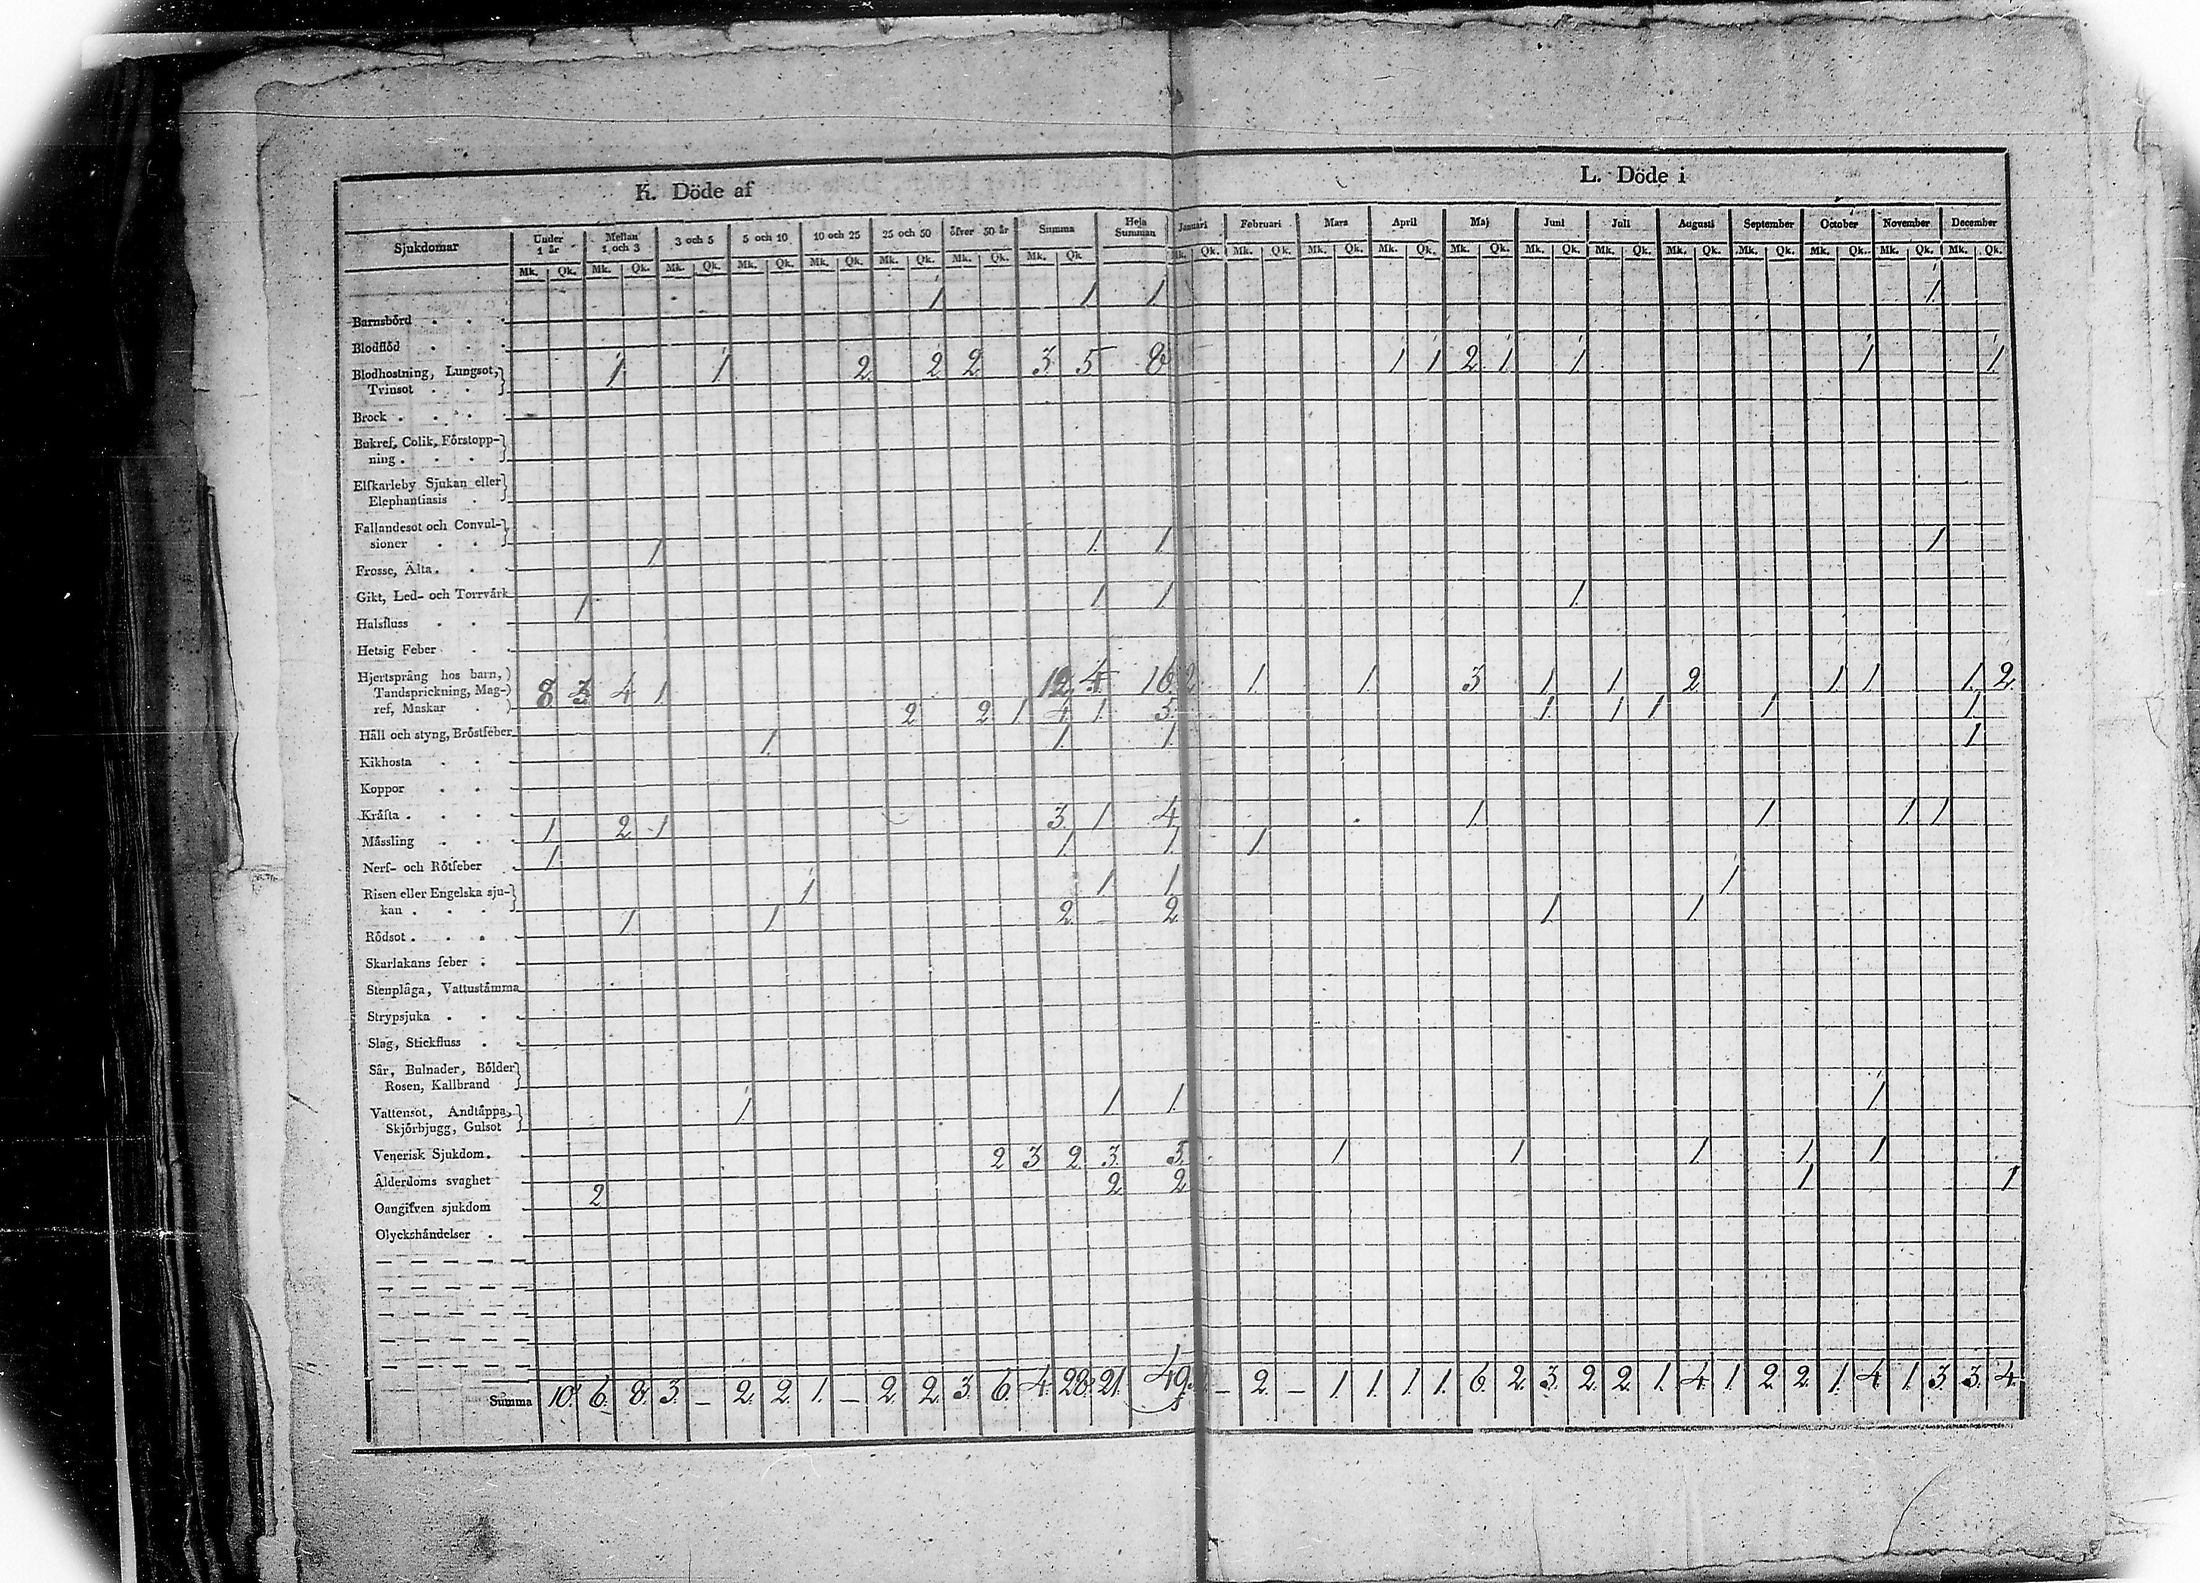 K. Döde af L. Döde i
Sjukdomar Under 1 år Mellan 1 och 3 3 och 5 5 och 10 10 och 25 25 och 50 öfver 50 år Summa Hela Summan Januari Februari Mars April Maj Juni Juli Augusti September October November December
Mk. Qk. Mk. Qk. Mk. Qk. Mk. Qk. Mk. Qk. Mk. Qk. Mk. Qk. Mk. Qk. Mk. Qk. Mk. Qk. Mk. Qk. Mk. Qk. Mk. Qk. Mk. Qk. Mk. Qk. Mk. Qk. Mk. Qk. Mk. Qk. Mk. Qk. Mk. Qk.
Barnsbörd 1 1 1 1
Blodflöd
Blodhostning, Lungsot, 1 1 2 2 2 3 5 8 1 1 2 1 1 1 1
Tvinsot
Brock
Bukref, Colik, Förstopp-
ning
Elfkarleby Sjukan eller
Elephantiasis
Fallandesot och Convul-
sioner 1 1 1 1
Frosse, Älta
Gikt, Led- och Torrvärk 1 1 1 1
Halsfluss
Hetsig Feber
Hjertsprång hos barn,
Tandsprickning, Mag- 8 3 4 1 12 4 16 2 1 1 3 1 1 2 1 1 1 2
ref, Maskar
Håll och styng, Bröstfeber 2 2 1 4 1 5 1 1 1 1 1
Kikhosta 1 1 1 1
Koppor
Kräfta
Mässling 1 2 1 3 1 4 1 1 1 1
Nerf- och Rötfeber 1 1 1 1
Risen eller Engelska sju- 1 1 1 1
kan
Rödsot 1 1 2 2 1 1
Skarlakans feber
Stenplåga, Vattustämma
Strypsjuka
Slag, Stickfluss
Sår, Bulnader, Bölder
Rosen, Kallbrand
Vattensot, Andtäppa, 1 1 1 1
Skjörbjugg, Gulsot
Venerisk Sjukdom
Ålderdoms svaghet 2 3 2 3 5 1 1 1 1 1
Oangifven sjukdom 2 2 2 1 1
Olyckshändelser
Summa 10 6 8 3 – 2 2 1 – 2 2 3 6 4 28 21 49 – 2 – 1 1 1 1 6 2 3 2 2 1 4 1 2 2 1 4 1 3 3 4